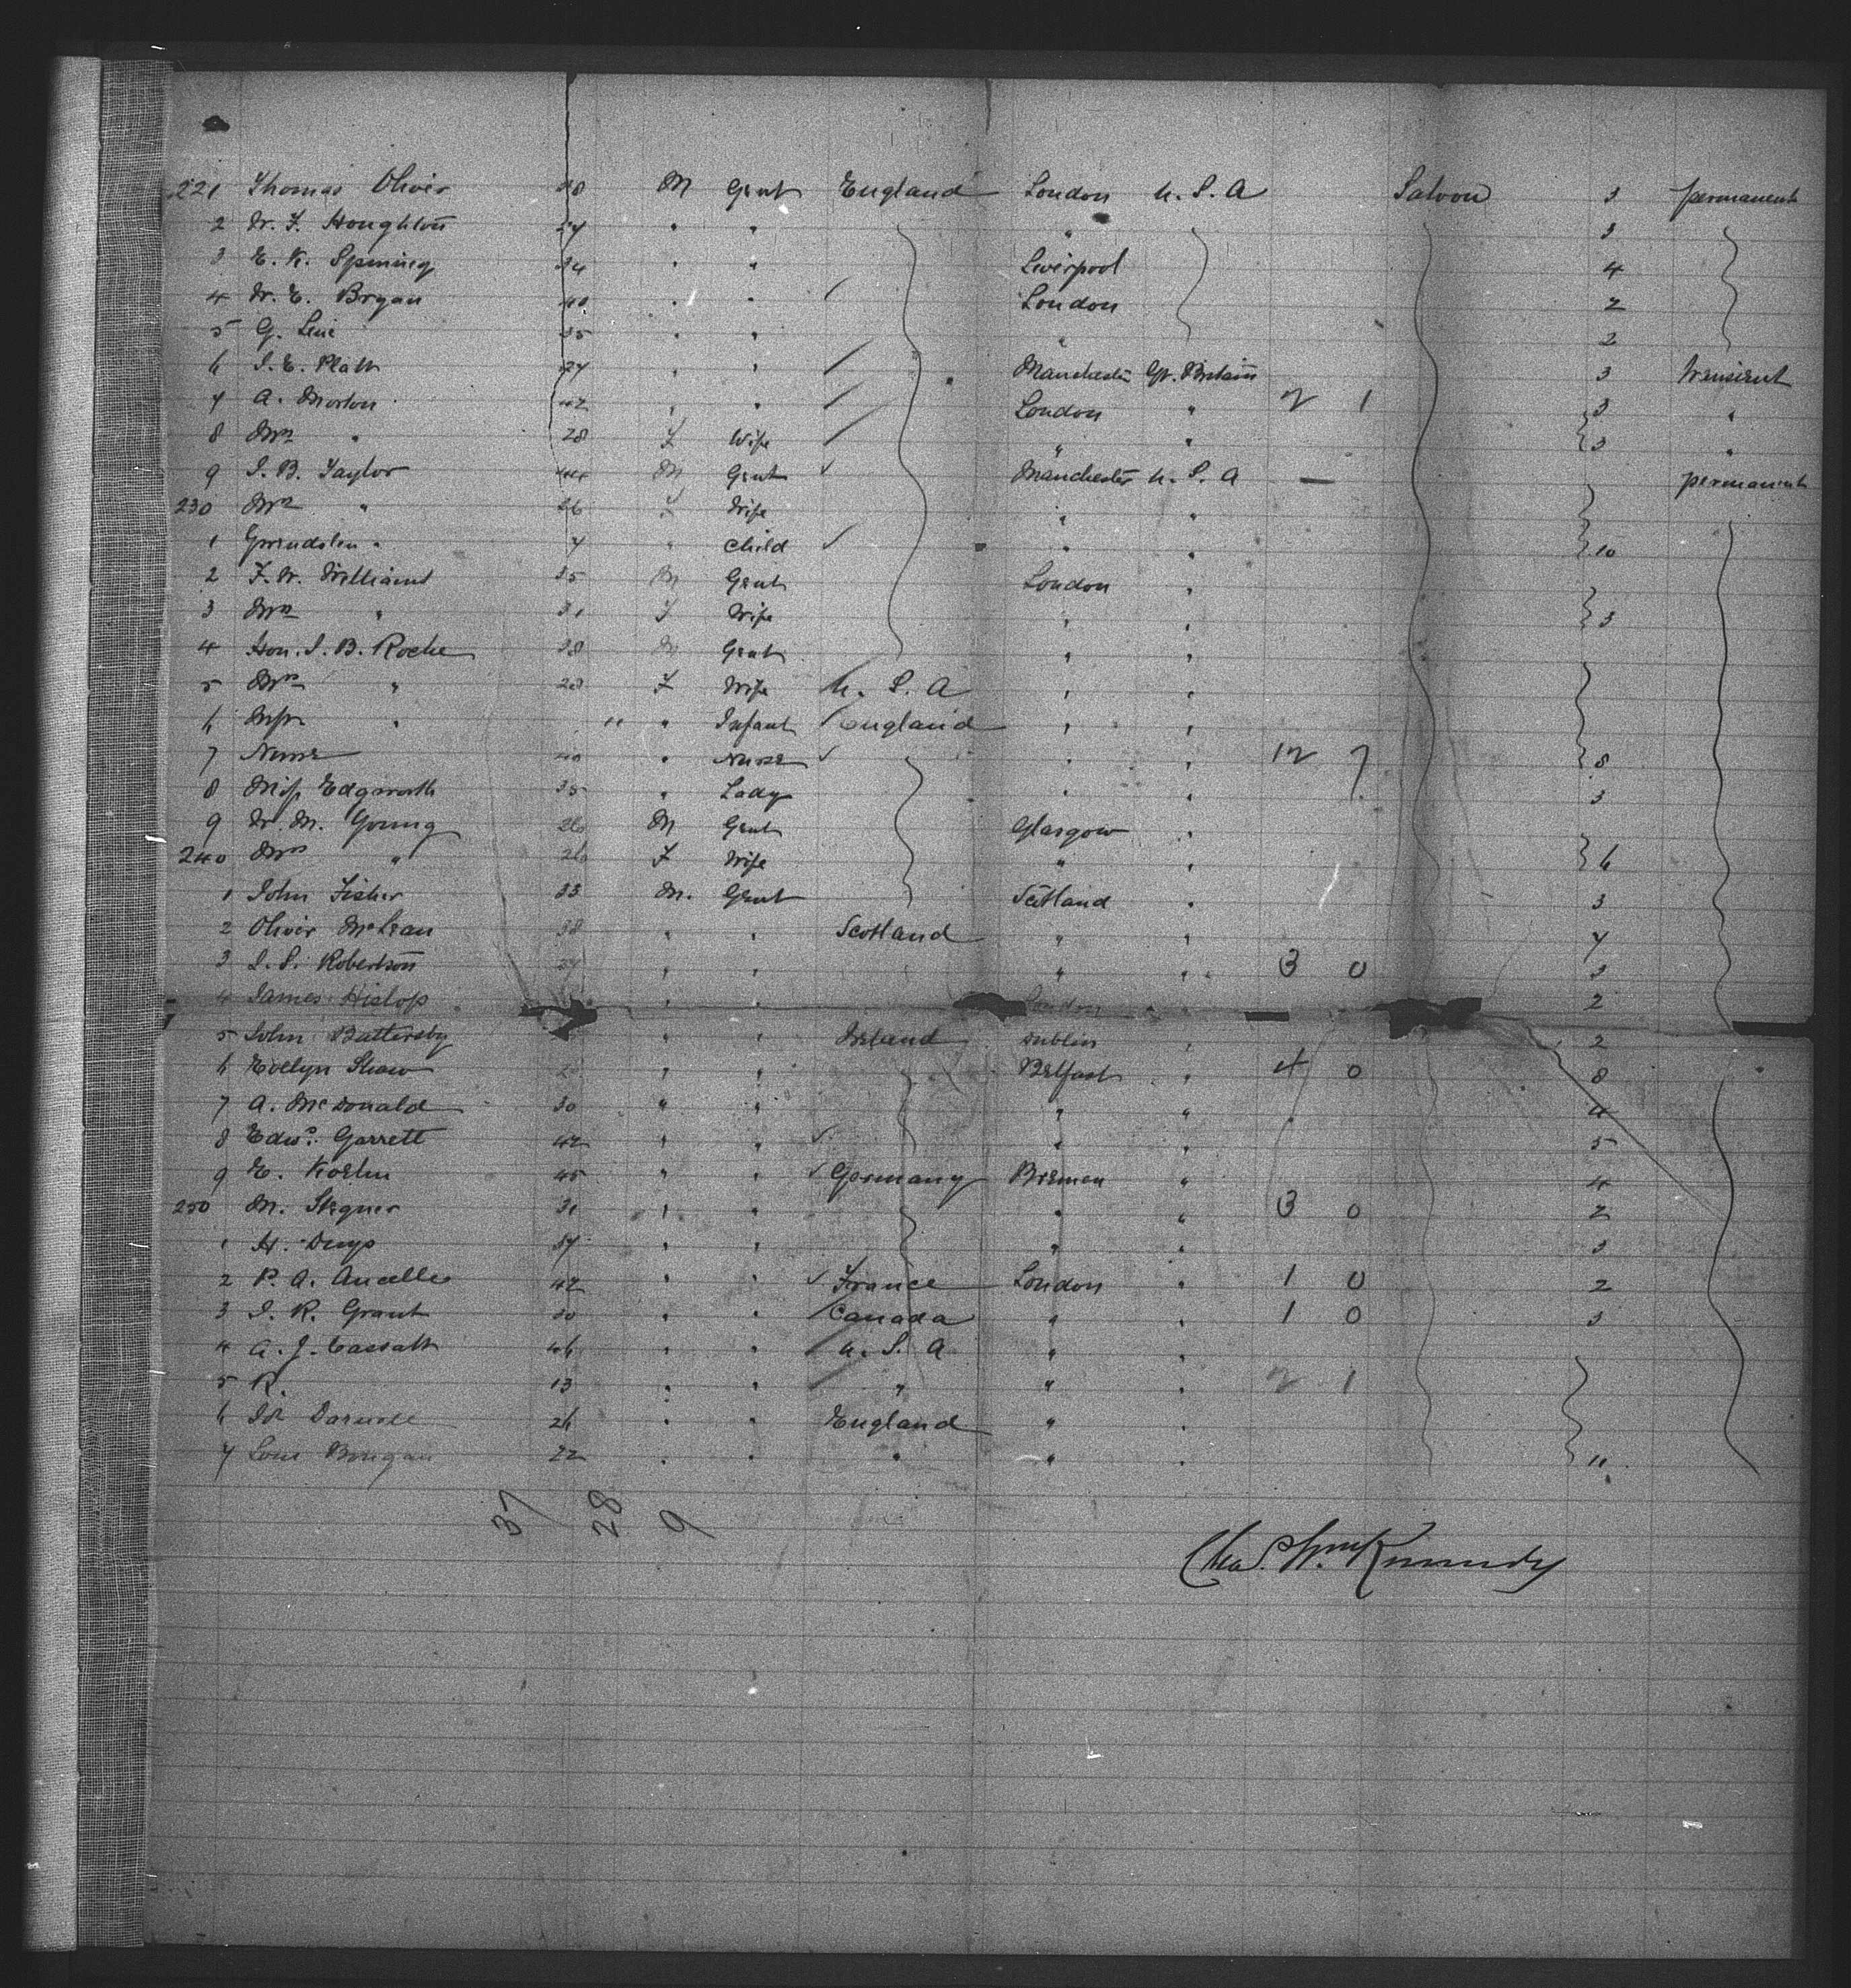 221 Thomas Oliver 28 M Gent England London U. S. A Saloon 3 permanent
2 W. F. Houghton 27 " " " 3
3 E. K. Spinney 34 " " Liverpool 4
4 W. E. Bryan 40 " " London 2
5 G. 35 " " " 2
6 J. E. Platt 27 " " Manchester Gt. Britain 3 transient
7 A. Morton 42 " " London " 2 1 3 "
8 Mrs " 28 F Wife " " 3 "
9 J. B. Taylor 44 M Gent Manchester U. S. A — permanent
230 Mrs " 26 F Wife " "
1 Gwendolen " 7 " Child " " 10
2 F. W. Williams 35 M Gent London "
3 Mrs " 31 F Wife " " 3
4 Hon. J. B. Roche 28 M Gent " "
5 Mrs " 28 F Wife U. S. A " "
6 Miss " " " Infant England " "
7 Nurse 40 " Nurse " " 12 7 8
8 Miss Edgworth 35 " Lady " " 3
9 W. M. Young 26 M Gent Glasgow "
240 Mrs " 26 F Wife " " 6
1 John Fisher 33 M. Gent Scotland " 3
2 Oliver McLean 38 " " Scotland " " 7
3 J. S. Robertson " " " " 3 0 3
4 James Hislop " " London 2
5 John Battersby " " Ireland Dublin " 2
6 Evelyn Shaw " " Belfast " 4 0 8
7 A. McDonald 30 " " " " 4
8 Edwd. Garrett 42 " " " " 5
9 E. 45 " " Germany Bremen " 4
250 M. Stegner 31 " " " " 3 0 2
1 H. Duys 37 " " " " 3
2 P. A. Ancelle 42 " " France London " 1 0 2
3 J. R. Grant 30 " " Canada " " 1 0 3
4 A. J. Cassatt 46 " " U. S. A " "
5 R. 13 " " " " " 2 1
6 26 " " England " "
7 22 " " " " " 11
37 28 9
Chas. Wm Kennedy